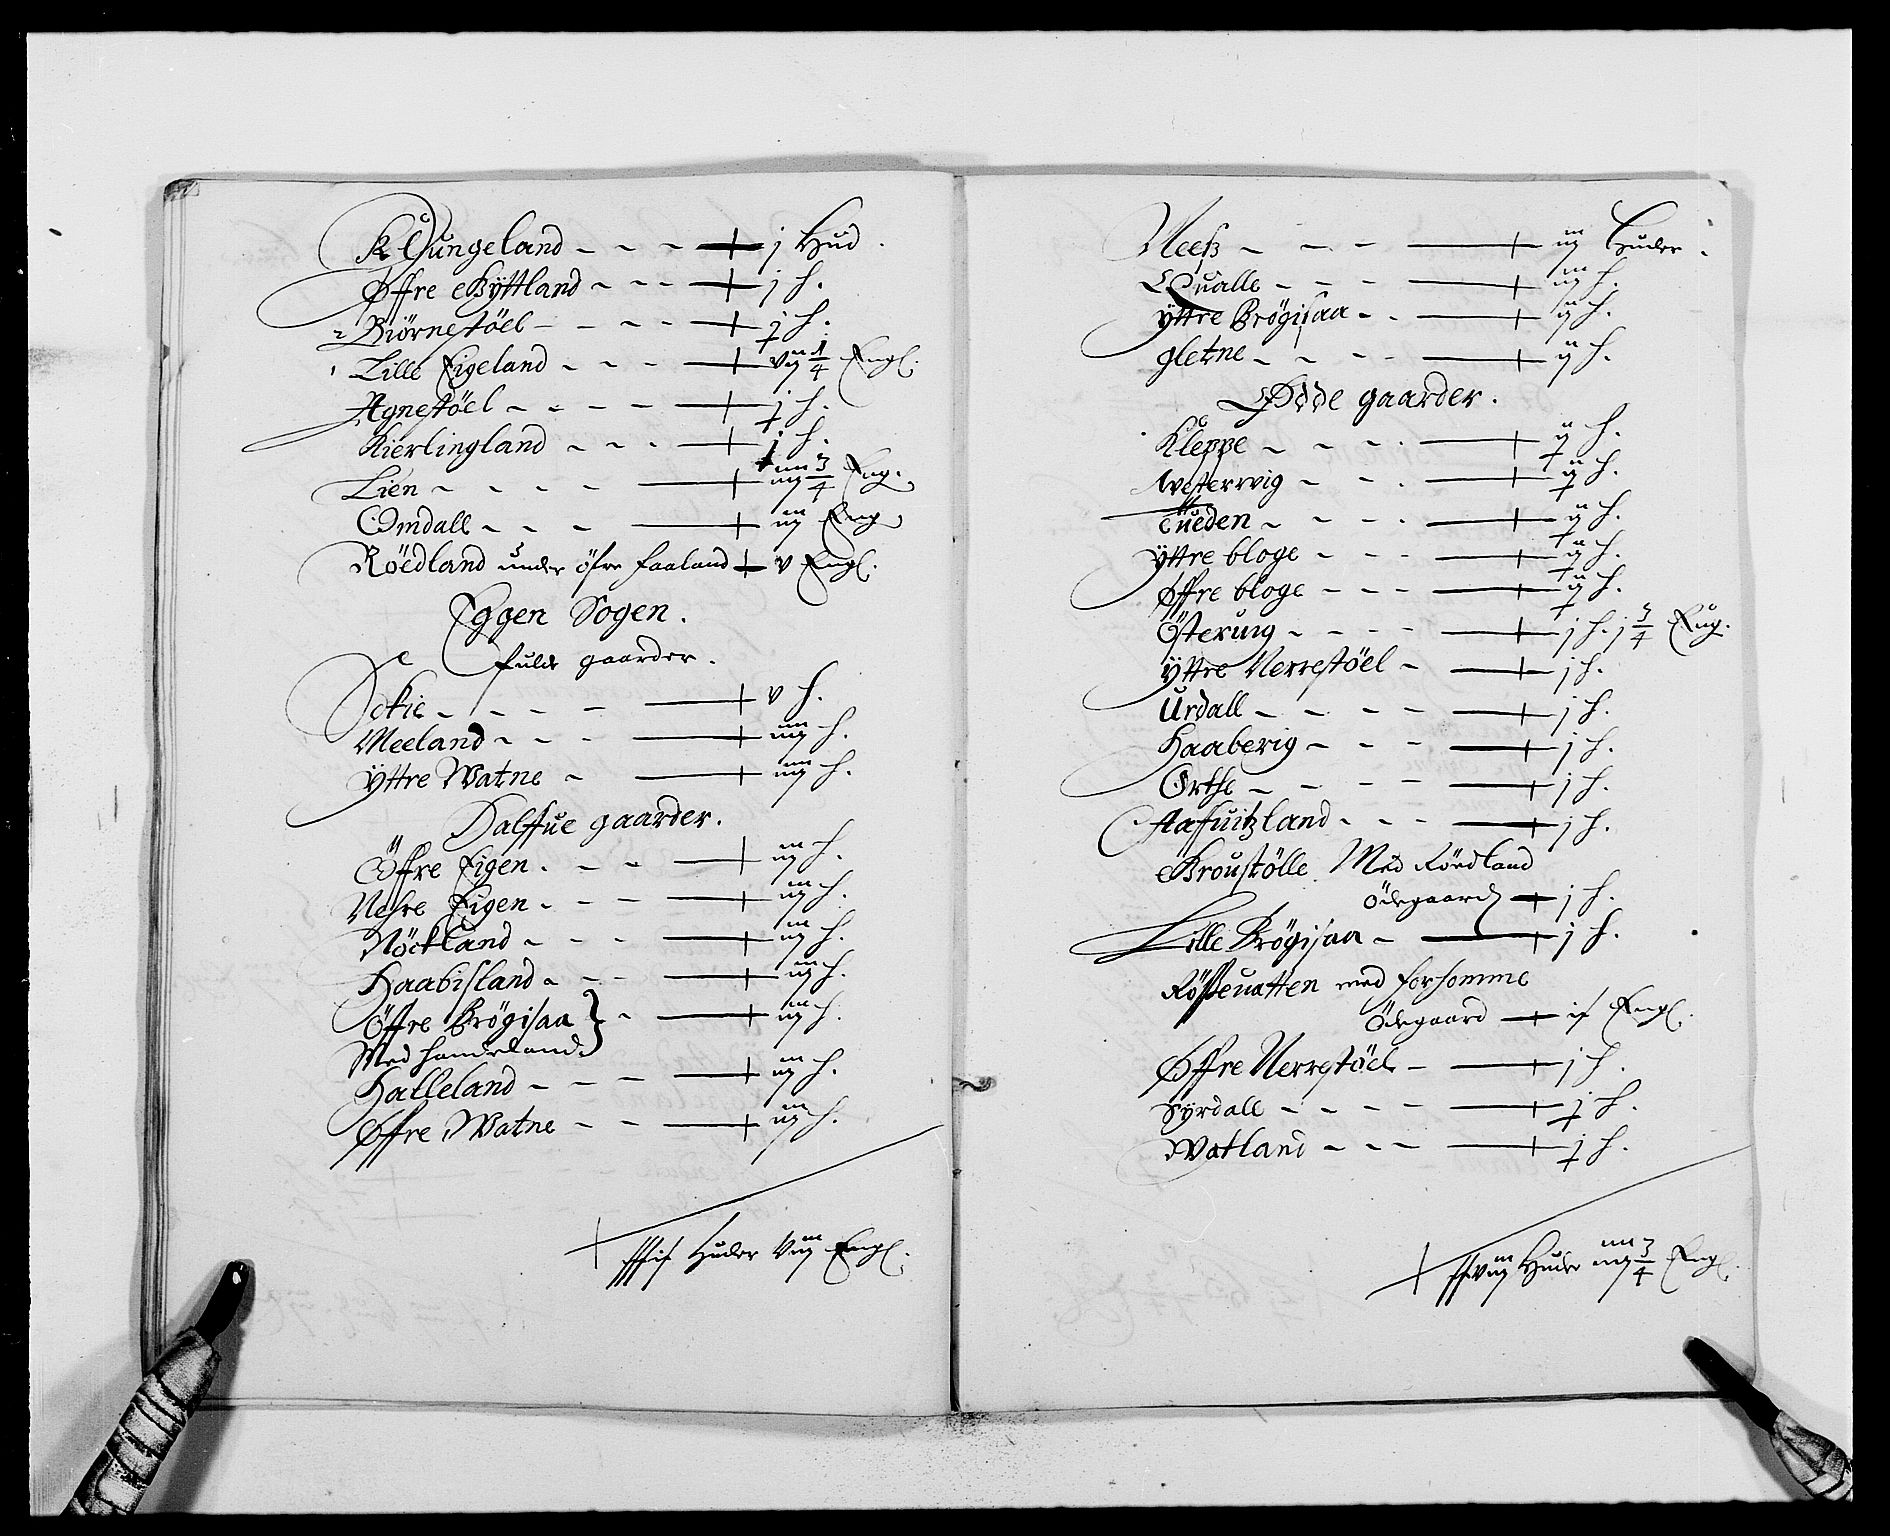 Klungeland - - - j Hud.
Øffre Byttland - - - j h.
Biörnestöel - - - - j h.
Lille Eigeland - - - vij 1/4 Engl.
Agnestöel - - - - j h.
Kierlingland - - - j h.
Lien - - - - iiij 3/4 Eng.
Omdall - - - iij Eng
Röedland under öfre faaland v Engl.
Eggen Sogen.
fulde gaarder.
Sckie - - - - v h.
Meeland - - - iiij h.
Yttre Watne - iiij h.
Halffue gaarder.
Öffre Eigen - - - iij h.
Nehre Eigen - - - iij h.
Nöckland - - - iij h.
Haabisland - - - iij h.
Öffre Brögisaa - iij h.
Med handeland
Halleland - - - iij h.
Øffre Watne - - iij h.
Huder Viij Engl.
Neesz - - - iij Huder.
Qualle - - - iij h.
Yttre Brögisaa - - ij h.
gletne - - - - ij h.
Øde gaarder.
Kleppe - - - - ij h.
Westerwig - - - ij h.
Tueden - - - - ij h.
Yttre bloge - - - ij h.
Øffre bloge - - - ij h.
Österuig - - - - j h. j 3/4 Eng.
Yttre Nerrestöel - j h.
Urdall - - - - j h.
Haaberig - - - j h.
Orthe - - - - j h.
Stafuitzland - - - j h.
Broustölle Med Röedland
Ödegaard j h.
Lille Brögisaa - j h.
Rösseuatten med forsomme
Ödegaard ix Engl.
Øffre Nerrestöel - j h.
Syrdall - - - - j h.
Watland - - - j h.
Huder iiij 3/4 Engl.